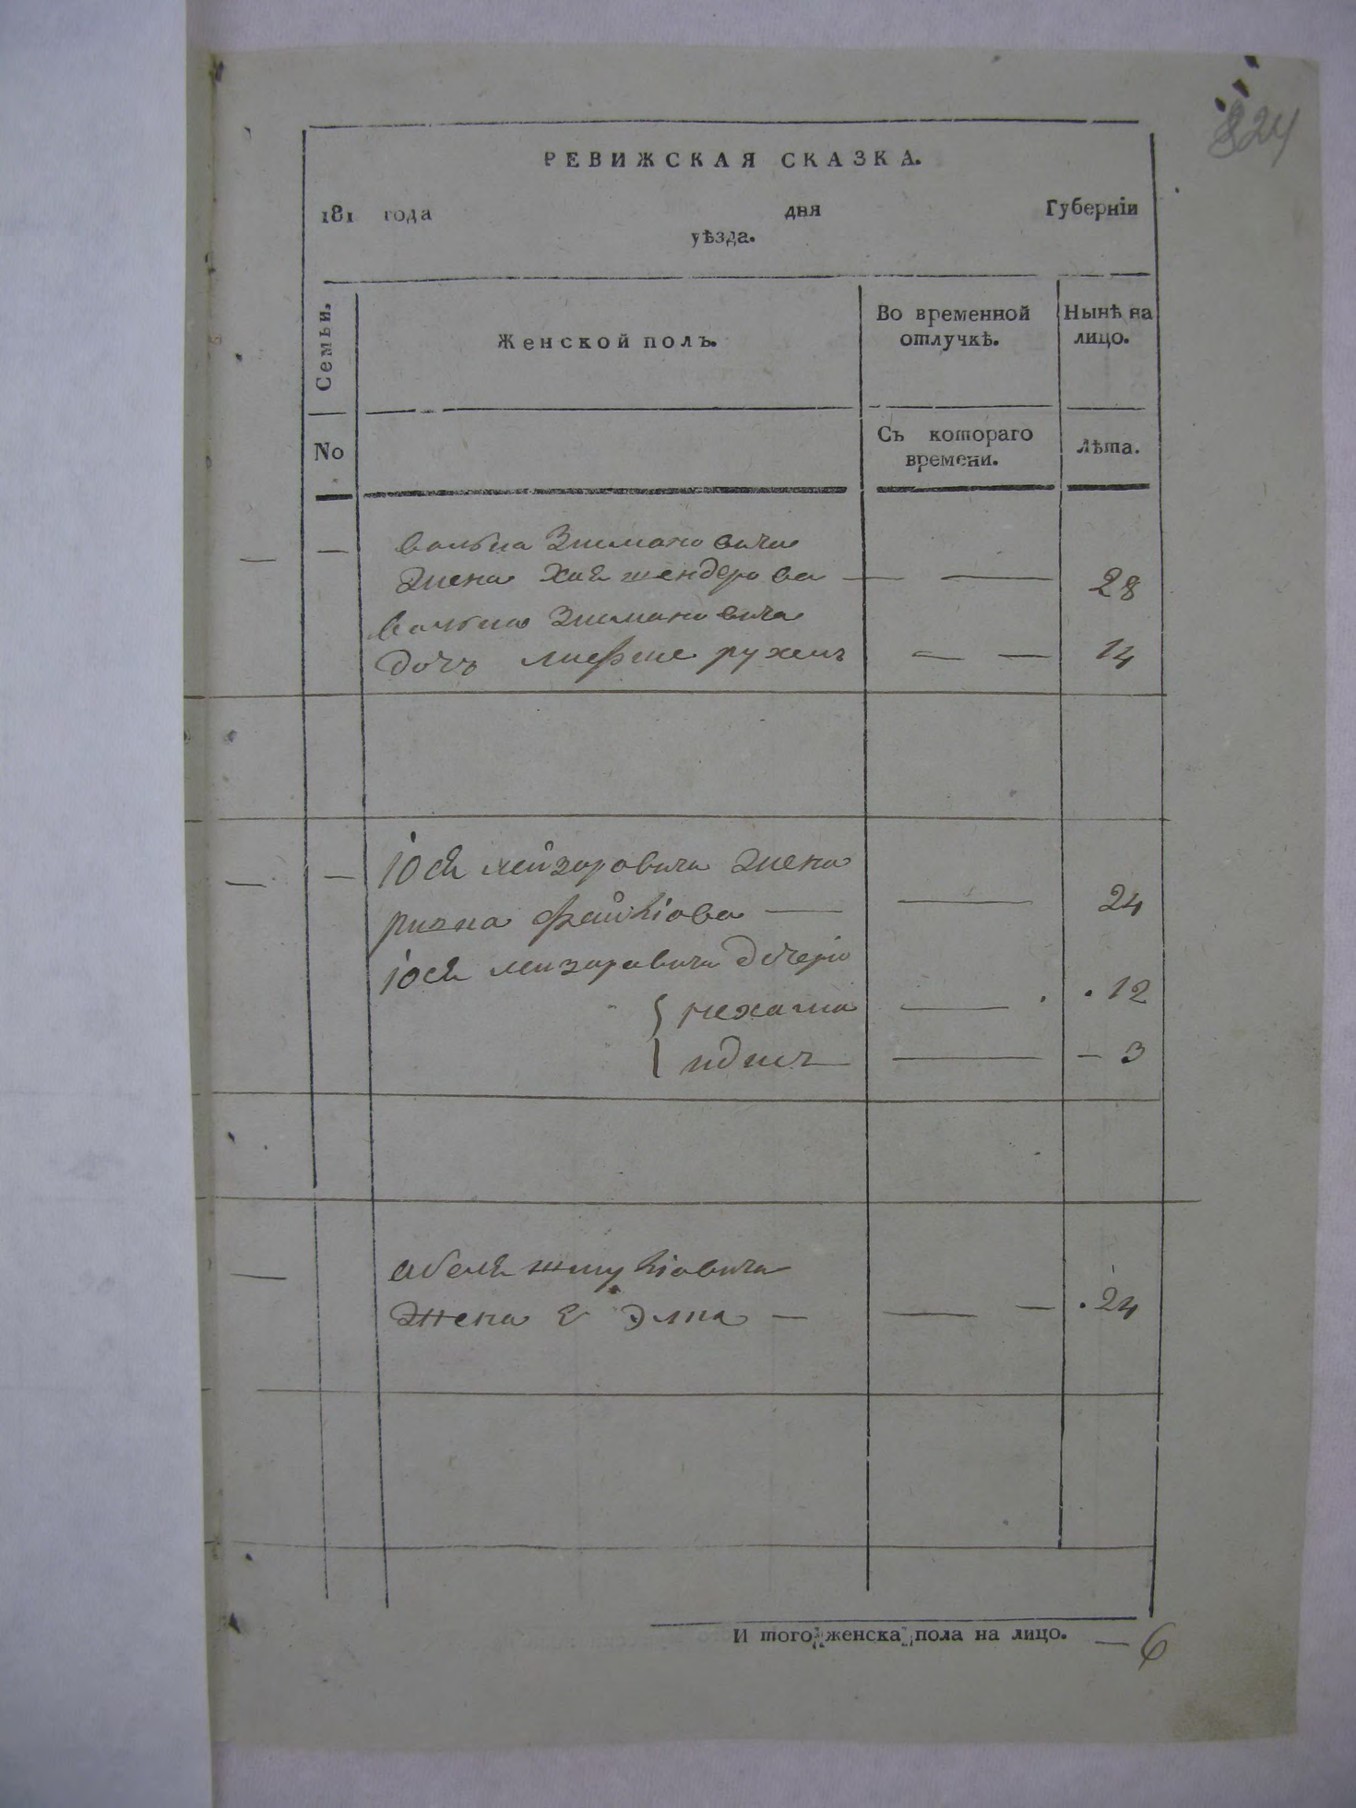 824
РЕВИЖСКАЯ СКАЗКА.
181 года дня Губерніи
уѣзда.
Семьи. Женской полъ. Во временной отлучкѣ. Нынѣ на лицо.
No Съ котораго времени. лѣта.
— — Вольфа Зимановича
жена Хая шендерова — — 28
Вольфа Зимановича
дочь — — 14
— — Іося лейзеровича жена
— — 24
Іося лейзеровича дочери
нехама — . 12
— – 3
— абеля
жена Е Элка — — — . 24
И того женска пола на лицо. — 6